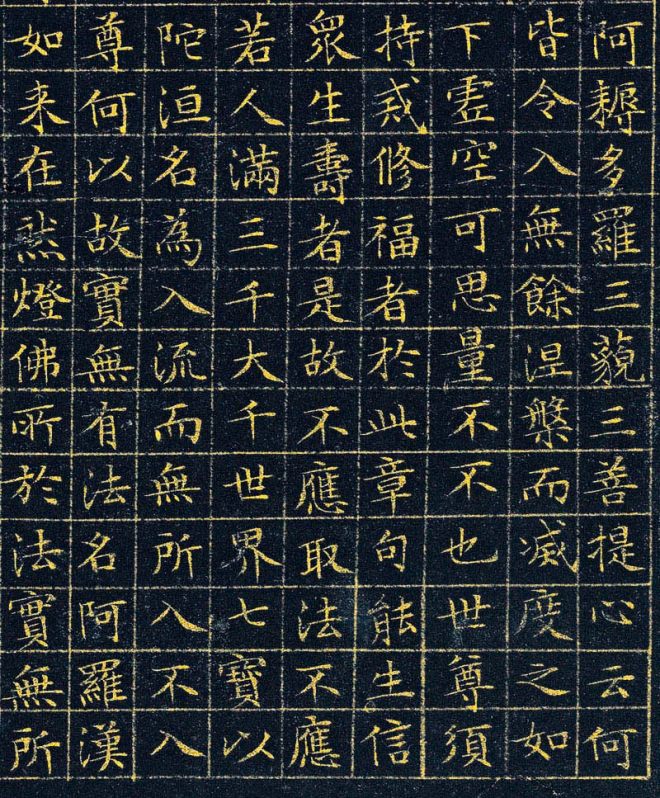 阿耨多羅三藐三菩提心云何
皆令入無餘涅槃而滅度之如
下虛空可思量不不也世尊須
持戒修福者於此章句能生信
眾生壽者是故不應取法不應
若人滿三千大千世界七寶以
陀洹名為入流而無所入不入
尊何以故實無有法名阿羅漢
如来在然燈佛所於法實無所